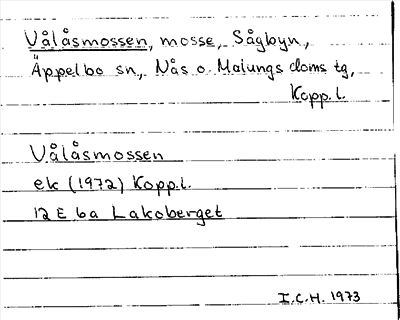 Vålåsmossen, mosse, Sågbyn,
Äppelbo sn, Nås o. Malungs doms tg,
Kopp.l.
Vålåsmossen
ek (1972) Kopp.l.
12 E 6a Lakoberget
I.C.H. 1973